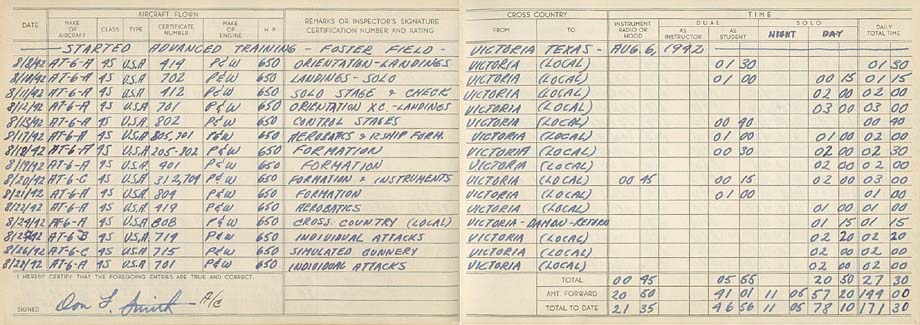 AIRCRAFT FLOWN CROSS COUNTRY TIME
DATE MAKE OF AIRCRAFT CLASS TYPE CERTIFICATE NUMBER MAKE OF ENGINE H.P. REMARKS OR INSPECTOR'S SIGNATURE CERTIFICATION NUMBER AND RATING FROM TO INSTRUMENT RADIO OR HOOD DUAL AS INSTRUCTOR AS STUDENT SOLO NIGHT DAY DAILY TOTAL TIME
STARTED ADVANCED TRAINING - FOSTER FIELD - VICTORIA TEXAS - AUG. 6, 1942
8/8/42 AT-6-A 4S U.S.A 419 P&W 650 ORIENTATION-LANDINGS VICTORIA (LOCAL) 01 30 01 30
8/10/42 AT-6-A 4S U.S.A 702 P&W 650 LANDINGS-SOLO VICTORIA (LOCAL) 01 00 00 15 01 15
8/11/42 AT-6-A 4S U.S.A 412 P&W 650 SOLO STAGE & CHECK VICTORIA (LOCAL) 02 00 02 00
8/12/42 AT-6-A 4S U.S.A 701 P&W 650 ORIENTATION XC.-LANDINGS VICTORIA (LOCAL) 03 00 03 00
8/15/42 AT-6-A 4S U.S.A. 802 P&W 650 CONTROL STAGES VICTORIA (LOCAL) 00 40 00 40
8/17/42 AT-6-A 4S U.S.A 805,701 P&W 650 AEROBATICS & FORM. VICTORIA (LOCAL) 01 00 01 00 02 00
8/18/42 AT-6-A 4S U.S.A 205-802 P&W 650 FORMATION VICTORIA (LOCAL) 00 30 02 00 02 30
8/19/42 AT-6-A 4S U.S.A. 401 P&W 650 FORMATION VICTORIA (LOCAL) 02 00 02 00
8/20/42 AT-6-C 4S U.S.A 312,704 P&W 650 FORMATION & INSTRUMENTS VICTORIA (LOCAL) 00 45 00 15 02 00 03 00
8/21/42 AT-6-A 4S U.S.A. 804 P&W 650 FORMATION VICTORIA (LOCAL) 01 00 01 00
8/22/42 AT-6-A 4S U.S.A 419 P&W 650 AEROBATICS VICTORIA (LOCAL) 01 00 01 00
8/24/42 AT-6-A 4S U.S.A 808 P&W 650 CROSS COUNTRY (LOCAL) VICTORIA-DAMON-RETURN 01 15 01 15
AT-6 B 4S U.S.A 714 P&W 650 INDIVIDUAL ATTACKS VICTORIA (LOCAL) 02 20 02 20
8/26/42 AT-6-C 4S U.S.A 715 P&W 650 SIMULATED GUNNERY VICTORIA (LOCAL) 02 00 02 00
8/28/42 AT-6-A 4S U.S.A 701 P&W 650 INDIVIDUAL ATTACKS VICTORIA (LOCAL) 02 00 02 00
I HEREBY CERTIFY THAT THE FOREGOING ENTRIES ARE TRUE AND CORRECT. TOTAL 00 45 05 55 20 50 27 30
SIGNED Don L. Smith A/C AMT. FORWARD 20 50 41 01 11 05 57 20 144 00
TOTAL TO DATE 21 35 46 56 11 05 78 10 171 30